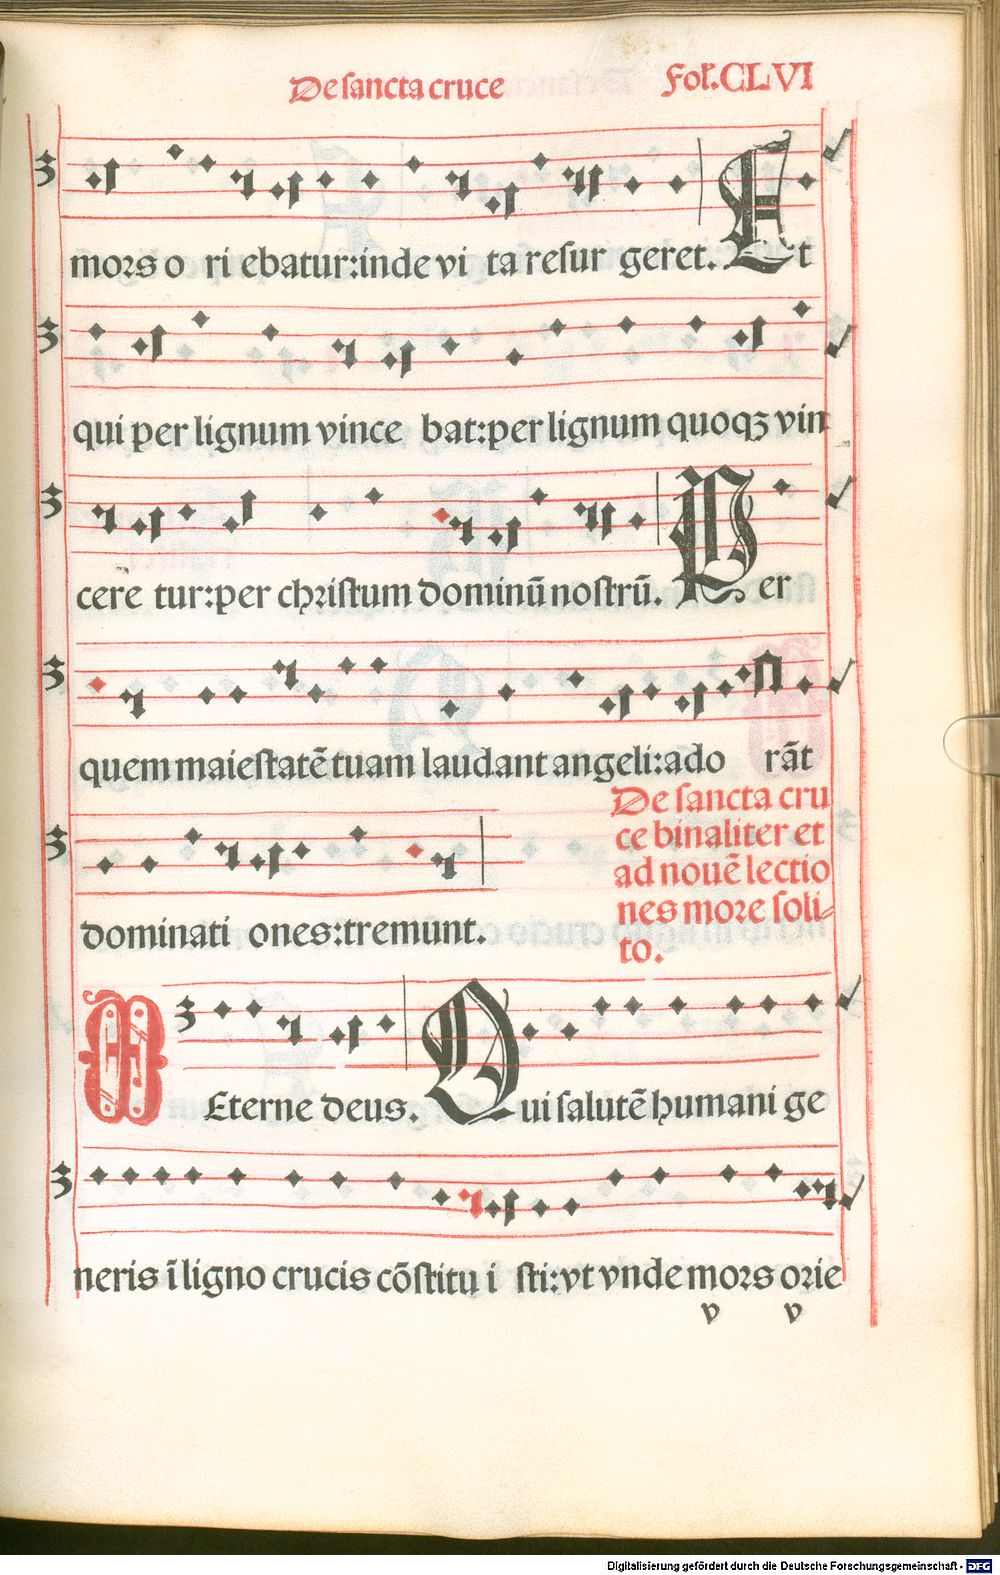 De sancta cruce Fol. CLVI
mors o ri ebatur: inde vi ta resur geret. Et
qui per lignum vince bat: per lignum quoqꝫ vin
cere tur: per christum dominū nostrū. Per
quem maiestatē tuam laudant angeli: ado rāt
dominati ones: tremunt.
De sancta cru
ce binaliter et
ad nouē lectio
nes more soli-
to.
Eterne deus. Qui salutē humani ge
neris ī ligno crucis cōstitu i sti: vt vnde mors orie
v v
Digitalisierung gefördert durch die Deutsche Forschungsgemeinschaft - DFG